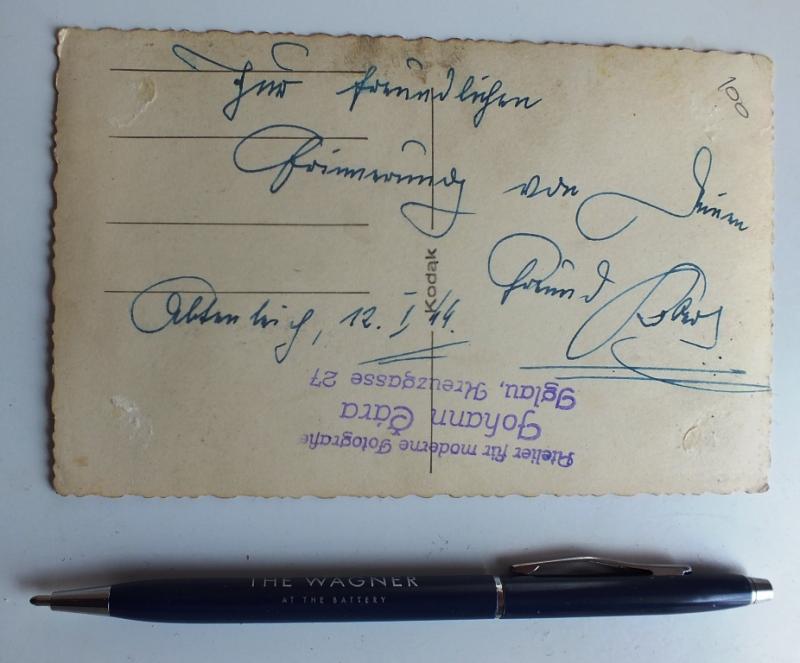 100
Zur freundlichen
Erinnerung von Deinem
Freund
Altenteich, 12. I 44.
Kodak
Atelier für moderne Fotografie
Johann Čára
Iglau, Kreuzgasse 27
THE WAGNER
AT THE BATTERY